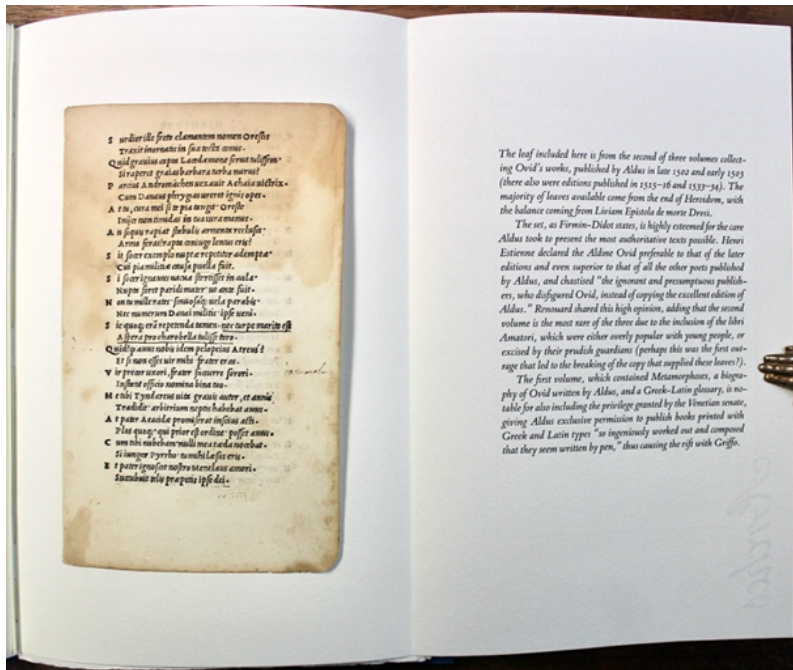 S urdior ille freto clamantem nomen Orestis
Traxit inornatis in sua tecta comis.
Quid grauius capta Lacedæmone serua tulissem.
Si raperet graias barbara turba nurus?
P arcius Andromachen uexauit Achaia uictrix.
Cum Danaus phrygias ureret ignis opes.
A t tu, cura mei si te pia tangit Oreste
Inijce non timidas in tua iura manus.
A n siquis rapiat stabulis armenta reclusis
Arma feras: rapta coniuge lentus eris?
S it socer exemplo nuptæ repetitor ademptæ
Cui pia militiæ causa puella fuit.
S i socer ignauus uacua stertisset in aula
Nupta foret paridi mater ut ante fuit.
N on tu mille rates sinuosaq; uela parabis
Nec numerum Danai militis ipse ueni.
S ic quoq; erā repetenda tamen. nec turpe marito est
Aspera pro charo bella tulisse toro.
Quid? q auus nobis idem pelopeius Atreus?
Et si non esses uir mihi frater eras.
V ir precor uxori, frater succurre sorori.
Instant officio nomina bina tuo.
M e tibi Tyndareus uita grauis auctor, et annis
Tradidit arbitrium neptis habebat auus.
A t pater Aeacidæ promiserat inscius acti.
Plus quoq; qui prior est ordine posset auus.
C um tibi nubebam nulli mea tæda nocebat.
Si iungar Pyrrho tu mihi læsus eris.
E t pater ignoscet nostro Menelaus amori.
Succubuit telis præpetis ipse dei.
The leaf included here is from the second of three volumes collect-
ing Ovid's works, published by Aldus in late 1502 and early 1503
(there also were editions published in 1515–16 and 1533–34). The
majority of leaves available come from the end of Heroidvm, with
the balance coming from Liviam Epistola de morte Drvsi.
The set, as Firmin-Didot states, is highly esteemed for the care
Aldus took to present the most authoritative texts possible. Henri
Estienne declared the Aldine Ovid preferable to that of the later
editions and even superior to that of all the other poets published
by Aldus, and chastised "the ignorant and presumptuous publish-
ers, who disfigured Ovid, instead of copying the excellent edition of
Aldus." Renouard shared this high opinion, adding that the second
volume is the most rare of the three due to the inclusion of the libri
Amatori, which were either overly popular with young people, or
excised by their prudish guardians (perhaps this was the first out-
rage that led to the breaking of the copy that supplied these leaves?).
The first volume, which contained Metamorphoses, a biogra-
phy of Ovid written by Aldus, and a Greek-Latin glossary, is no-
table for also including the privilege granted by the Venetian senate,
giving Aldus exclusive permission to publish books printed with
Greek and Latin types "so ingeniously worked out and composed
that they seem written by pen," thus causing the rift with Griffo.